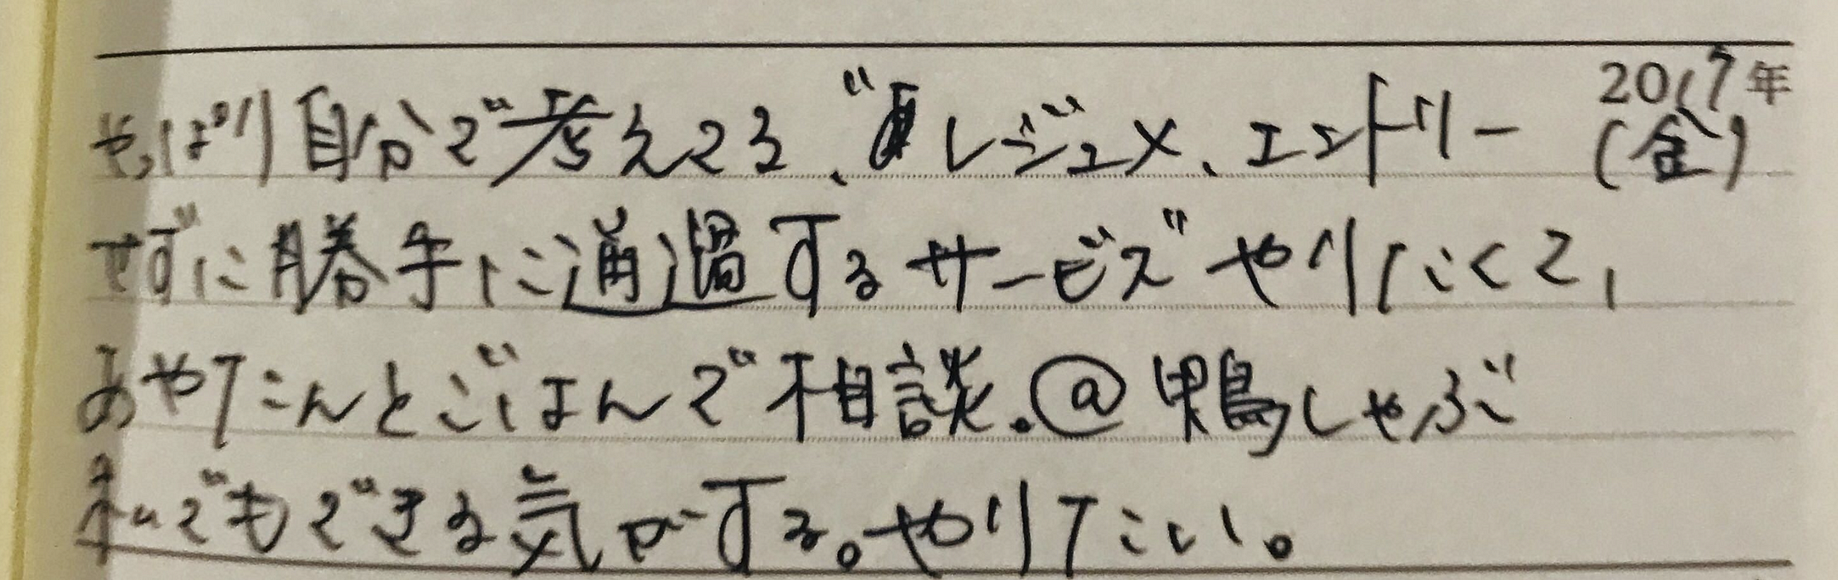 やっぱり自分で考えてる、"真レジュメ、エントリー
2017年
(金)
せずに勝手に通過するサービス"やりたくて、
あやたんとごはんで相談。@鴨しゃぶ
私でもできる気がする。やりたい。